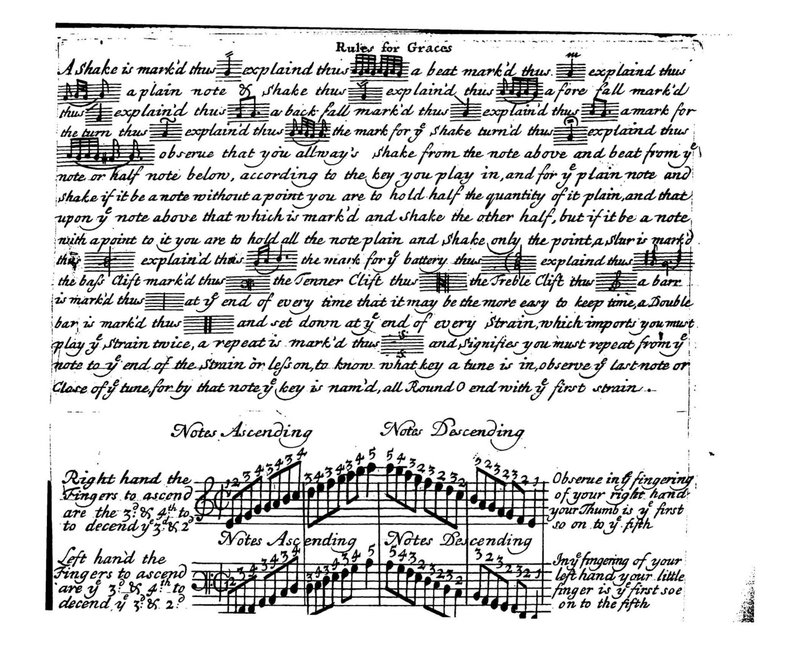 Rules for Graces
A Shake is mark'd thus explaind thus a beat mark'd thus explaind thus
a plain note & Shake thus explain'd thus a fore fall mark'd
thus explain'd thus a back fall mark'd thus explain'd thus a mark for
the turn thus explain'd thus the mark for yᵉ Shake turn'd thus explaind thus
observe that you allway's Shake from the note above and beat from yᵉ
note or half note below, according to the key you play in, and for yᵉ plain note and
Shake if it be a note without a point you are to hold half the quantity of it plain, and that
upon yᵉ note above that which is mark'd and Shake the other half, but if it be a note
with a point to it you are to hold all the note plain and Shake only the point, a Slur is mark'd
thus explain'd thus the mark for yᵉ battery thus explaind thus
the bass Clift mark'd thus the Tenner Clift thus the Treble Clift thus a barr
is mark'd thus at yᵉ end of every time that it may be the more easy to keep time, a Double
bar is mark'd thus and set down at yᵉ end of every Strain, which imports you must
play yᵉ Strain twice, a repeat is mark'd thus and Signifies you must repeat from yᵉ
note to yᵉ end of the Strain or lesson, to know what key a tune is in, observe yᵉ last note or
Close of yᵉ tune, for by that note yᵉ key is nam'd, all Round O end with yᵉ first strain.
Notes Ascending Notes Descending
Right hand the
Fingers to ascend
are the 3ᵈ & 4ᵗʰ to
to decend yᵉ 3ᵈ & 2ᵈ
1 2 3 4 3 4 3 4 3 4 3 4 3 4 5 5 4 3 2 3 2 3 2 3 2 3 2 3 2 1
Observe in yᵉ fingering
of your right hand
your Thumb is yᵉ first
so on to yᵉ fifth
Notes Ascending Notes Descending
Left hand the
Fingers to ascend
are yᵉ 3ᵈ & 4ᵗʰ to
decend yᵉ 3ᵈ & 2ᵈ
In yᵉ fingering of your
left hand your little
finger is yᵉ first soe
on to the fifth